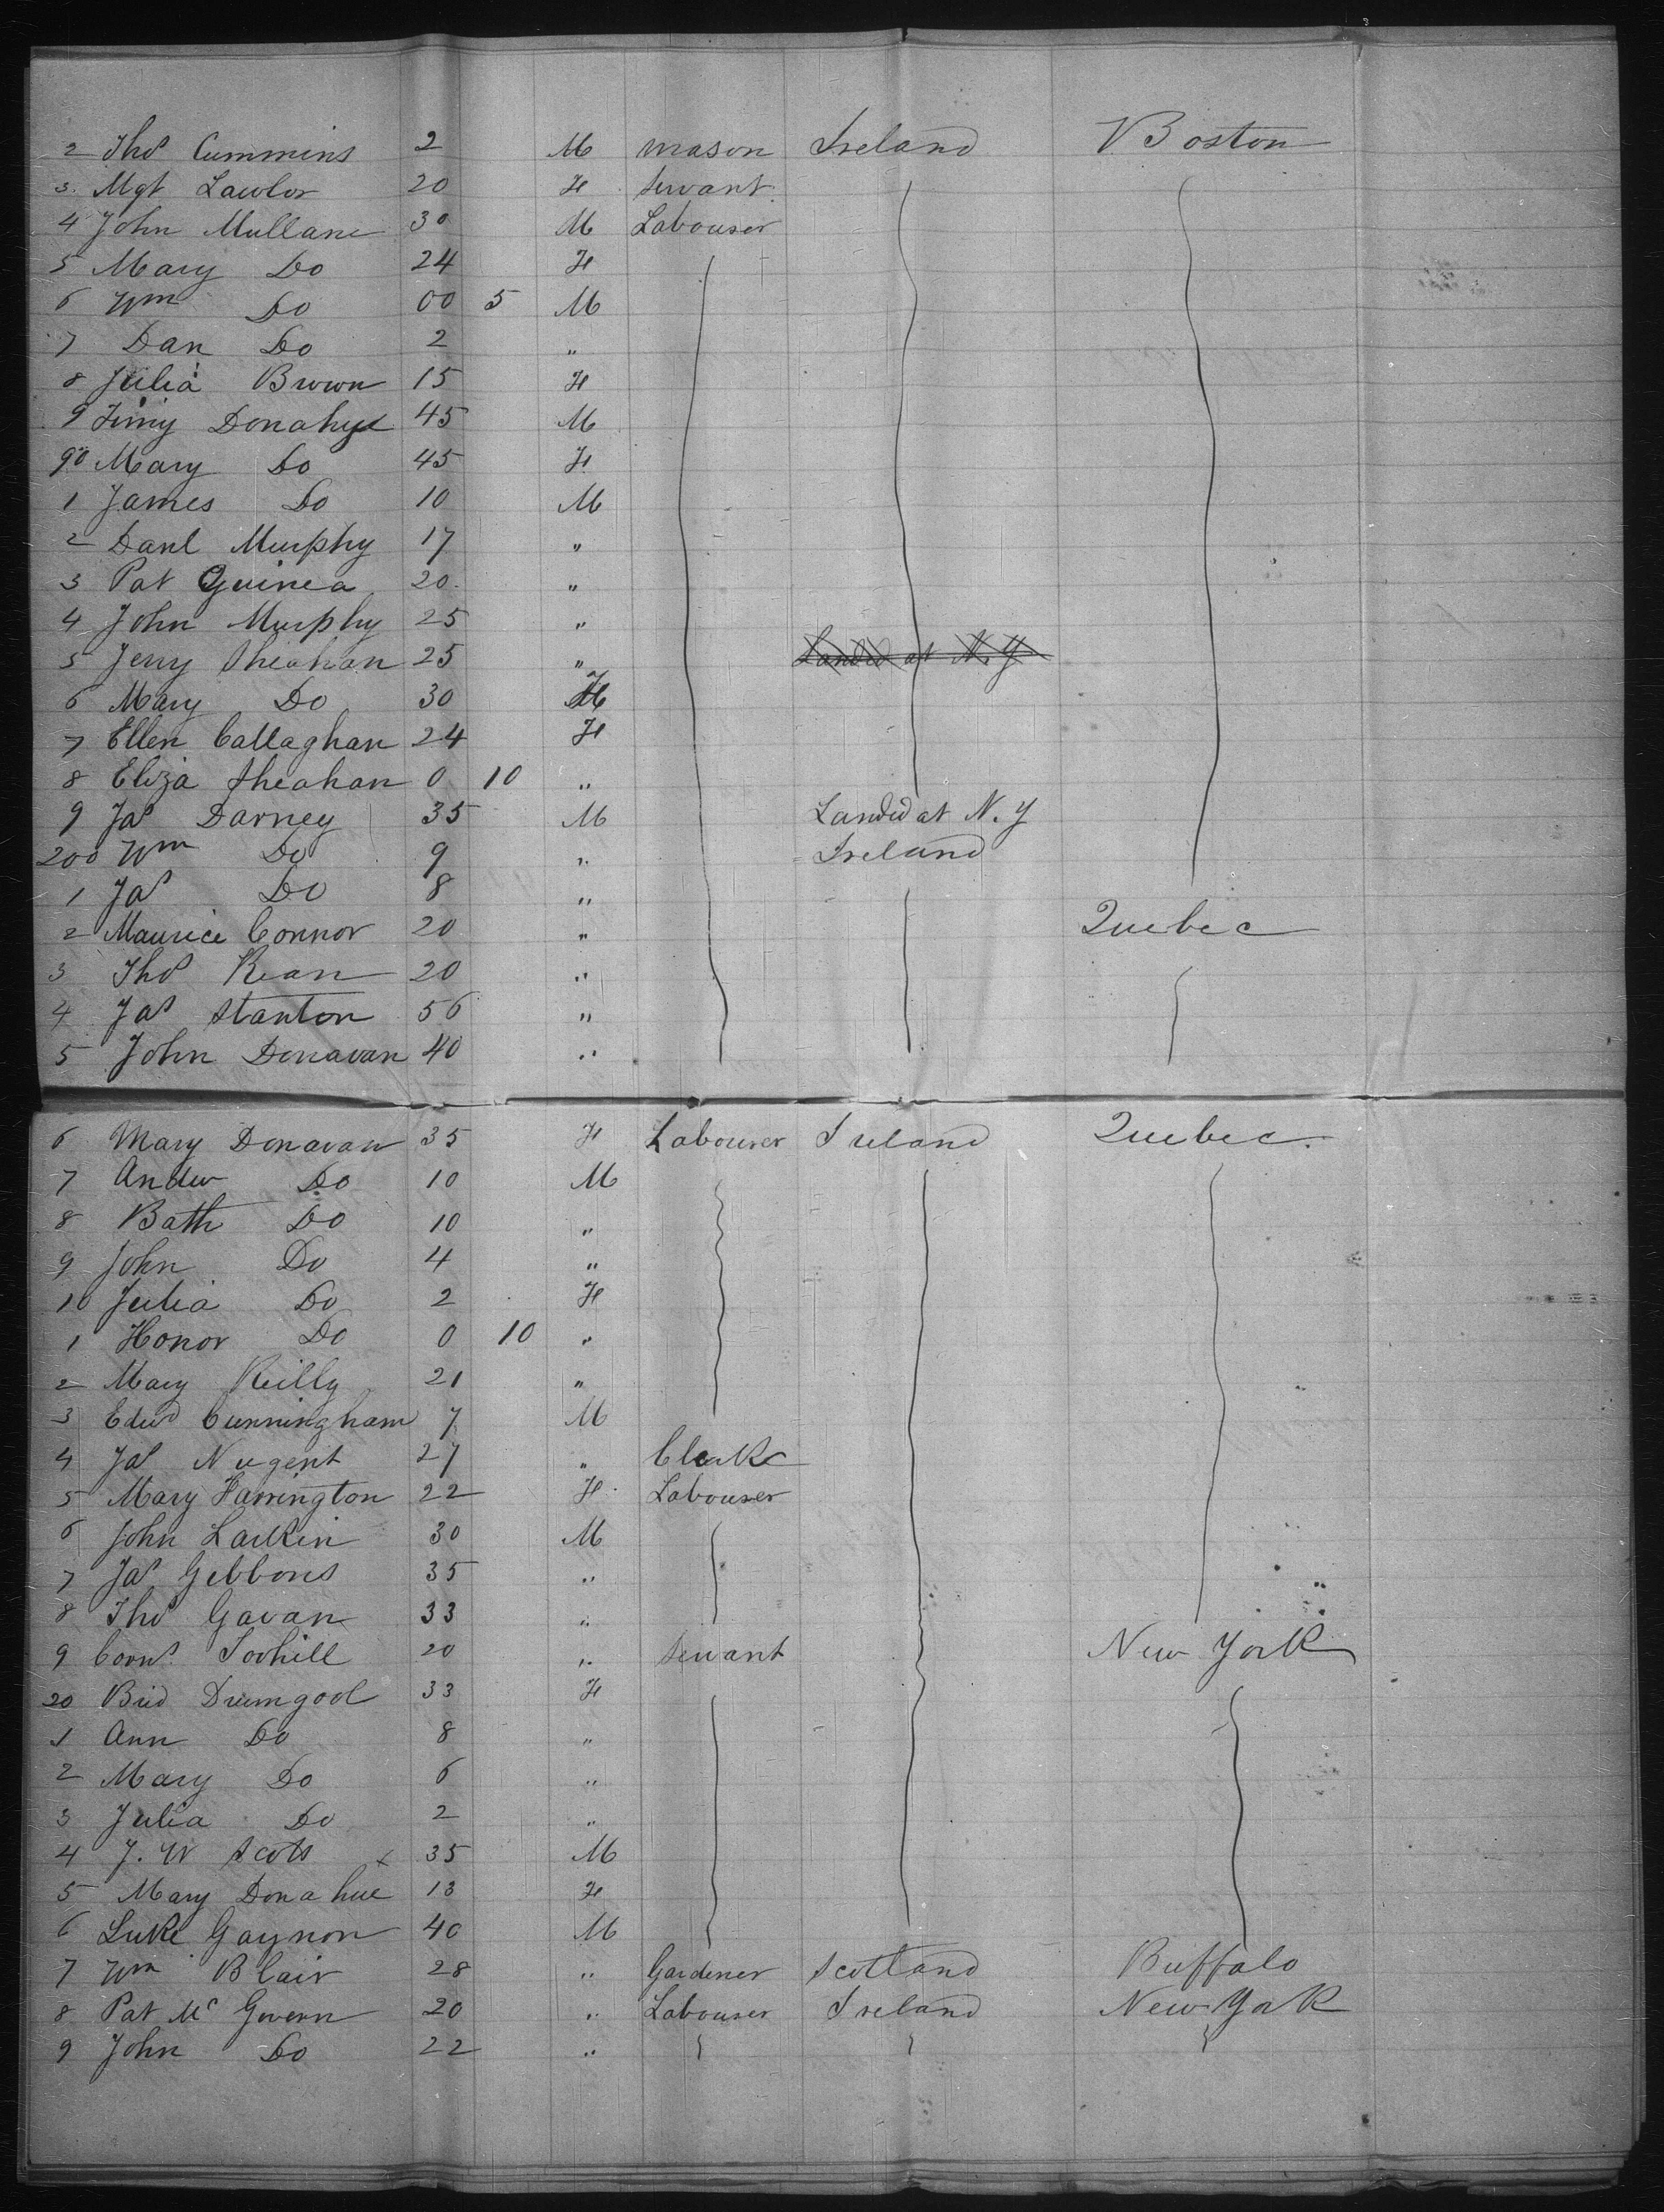 2 Thos Cummins 2 M mason Ireland Boston
3. Mgt Lawlor 20 F servant
4 John Mullane 30 M Labourer
5 Mary Do 24 F
6 Wm Do 00 5 M
7 Dan Do 2 "
8 Julia Brown 15 F
9 Donahye 45 M
90 Mary Do 45 F
1 James Do 10 M
2 Danl Murphy 17 "
3 Pat Guinea 20 "
4 John Murphy 25 "
5 Jerry Sheahan 25 " Landed at N.Y
6 Mary Do 30 F
7 Ellen Callaghan 24 F
8 Eliza Sheahan 0 10 "
9 Jas Darney 35 M Landed at N.Y
200 Wm Do 9 " Ireland
1 Jas Do 8 "
2 Maurice Connor 20 " Quebec
3 Thos Kean 20 "
4 Jas Stanton 56 "
5 John Donavan 40 "
6 Mary Donavan 35 F Labourer Ireland Quebec.
7 Andw Do 10 M
8 Bath Do 10 "
9 John Do 4 "
10 Julia Do 2 F
1 Honor Do 0 10 "
2 Mary Reilly 21 "
3 Edwd Cunningham 7 M
4 Jas Nugent 27 " Clerk
5 Mary Harrington 22 F Labourer
6 John Larkin 30 M
7 Jas Gibbons 35 "
8 Thos Gavan 33 "
9 Corns. Torhill 20 " servant New York
20 Brid Drumgool 33 F
1 Ann Do 8 "
2 Mary Do 6 "
3 Julia Do 2 "
4 J. W Scots x 35 M
5 Mary Donahue 13 F
6 Luke Gaynon 40 M
7 Wm Blair 28 " Gardener Scotland Buffalo
8 Pat Mc Govern 20 " Labourer Ireland New York
9 John Do 22 "